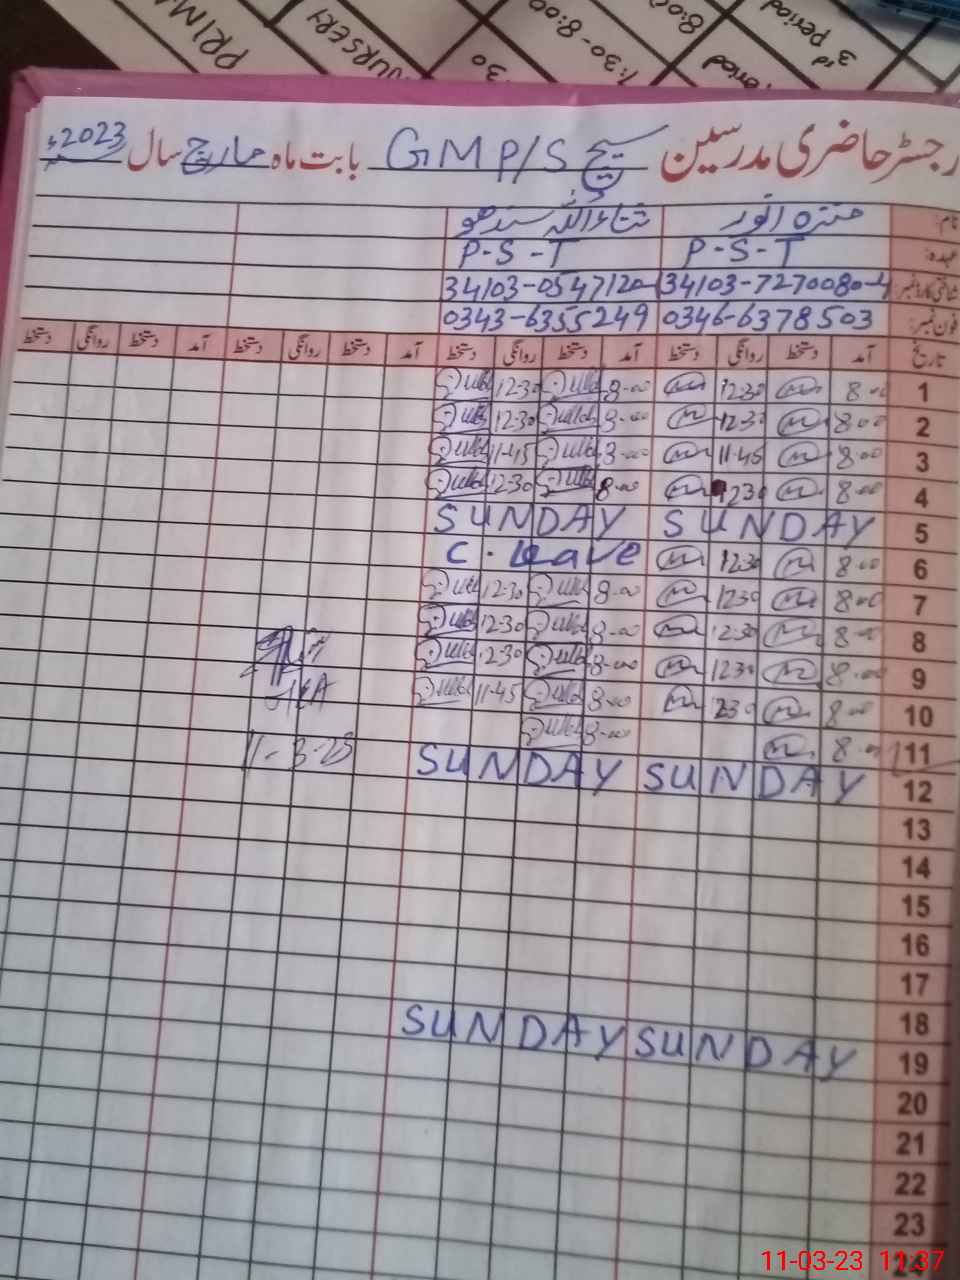 PRIM
NURSERY
:30
7:30-8:00
8:0
period
3rd period
رجسٹر حاضری مدرسین GMP/S سیج بابت ماہ مارچ سال 2023ء
نام: انور ثناء اللہ سندھو
عہدہ: P-S-T P-S-T
شناختی کارڈ نمبر: 34103-7270080-4 34103-0547120-
فون نمبر: 0346-6378503 0343-6355249
تاریخ آمد دستخط روانگی دستخط آمد دستخط روانگی دستخط آمد دستخط روانگی دستخط آمد دستخط روانگی دستخط
1 8:00 12:30 8:00 12:30
2 8:00 12:30 8:00 12:30
3 8:00 11:45 8:00 11:45
4 8:00 12:30 8:00 12:30
5 SUNDAY SUNDAY
6 8:00 12:30 C. Leave
7 8:00 12:30 8:00 12:30
8 8:00 12:30 8:00 12:30
9 8:00 12:30 8:00 12:30
10 8:00 12:30 8:00 11:45
11 8:00 8:00
11-3-23
12 SUNDAY SUNDAY
13
14
15
16
17
18
19 SUNDAY SUNDAY
20
21
22
23
24
11-03-23 11:37